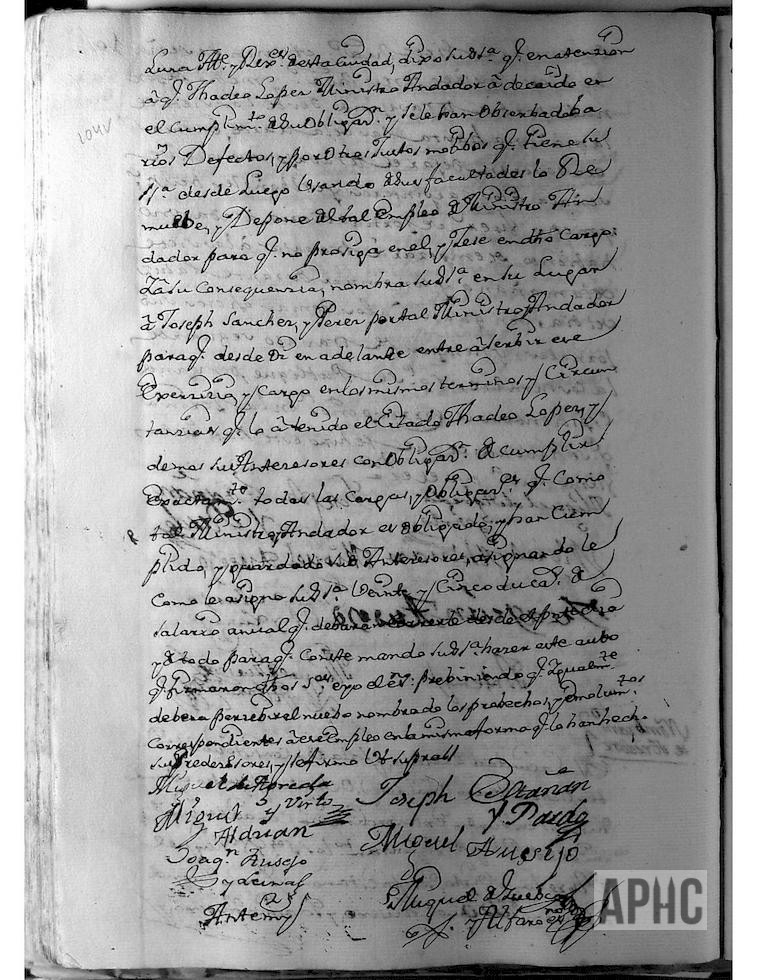 104v
Luna Alc.e y Rex.or de esta Ciudad, dixo su Sª q.e en atenzion
â q.e Thadeo Lopez Ministro Andador â decaido en
el Cumplim.to de su Obligaz.n y se le han Observado ba
rios Defectos, y por Otros Justos motibos q.e tiene su
Sª desde Luego Usando de sus facultades lo Re
muebe, y Depone del tal Empleo de Ministro An
dador para q.e no prosiga en el, y Zese en dho Cargo:
Y a su Consequenzia, nombra su Sª en su Lugar
â Joseph Sanchez, y Perez por tal Ministro Andador
para q.e desde Oi en adelante entre â serbir ese
Exerzizio, y Cargo en los mismos terminos y Circuns
tanzias q.e lo â tenido el Citado Thadeo Lopez, y
demas sus Antezesores con Obligaz.n de Cumplir
Exactam.te todas las Cargas, y Obligaz.es q.e Como
tal Ministro Andador es obligado, y han Cum
plido, y guardado sus Antezesores, asignando le
Como le asigno su Sª Veinte y Cinco ducad.s de
salario anual q.e debera
desde
y de todo para q.e Conste mando su Sª hazer este auto
q.e firmaron dhos S.res, e yo el es.no prebiniendo q.e Igualm.te
debera perzebir el nuebo nombrado los probechos, y emolum.tos
Correspondientes â ese Empleo en la misma forma q.e lo han hecho
sus Predezesores, y le firmo Ut supra
Miguel de
Miguel y Virto
Joseph Estañan
y Pardo
Adrian
Miguel Ausejo
Joaq.n Ausejo
Miguel
y Alfaro
Antemi
APHC